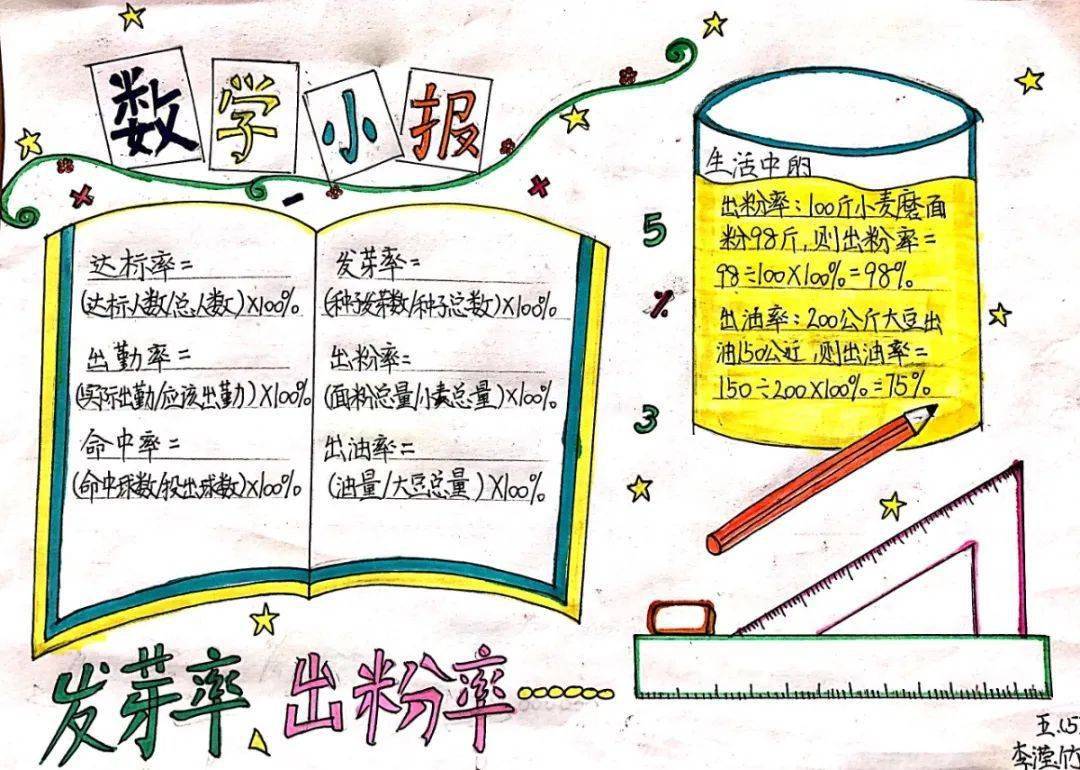 数学小报
达标率=
(达标人数/总人数)×100%
出勤率=
(实际出勤/应该出勤)×100%
命中率=
(命中球数/投出球数)×100%
发芽率=
(种子发芽数/种子总数)×100%
出粉率=
(面粉总量/小麦总量)×100%
出油率=
(油量/大豆总量)×100%
5
%
3
生活中的
出粉率:100斤小麦磨面
粉98斤,则出粉率=
98÷100×100%=98%
出油率:200公斤大豆出
油150公斤,则出油率=
150÷200×100%=75%
发芽率、出粉率……
五.(5
李滢竹